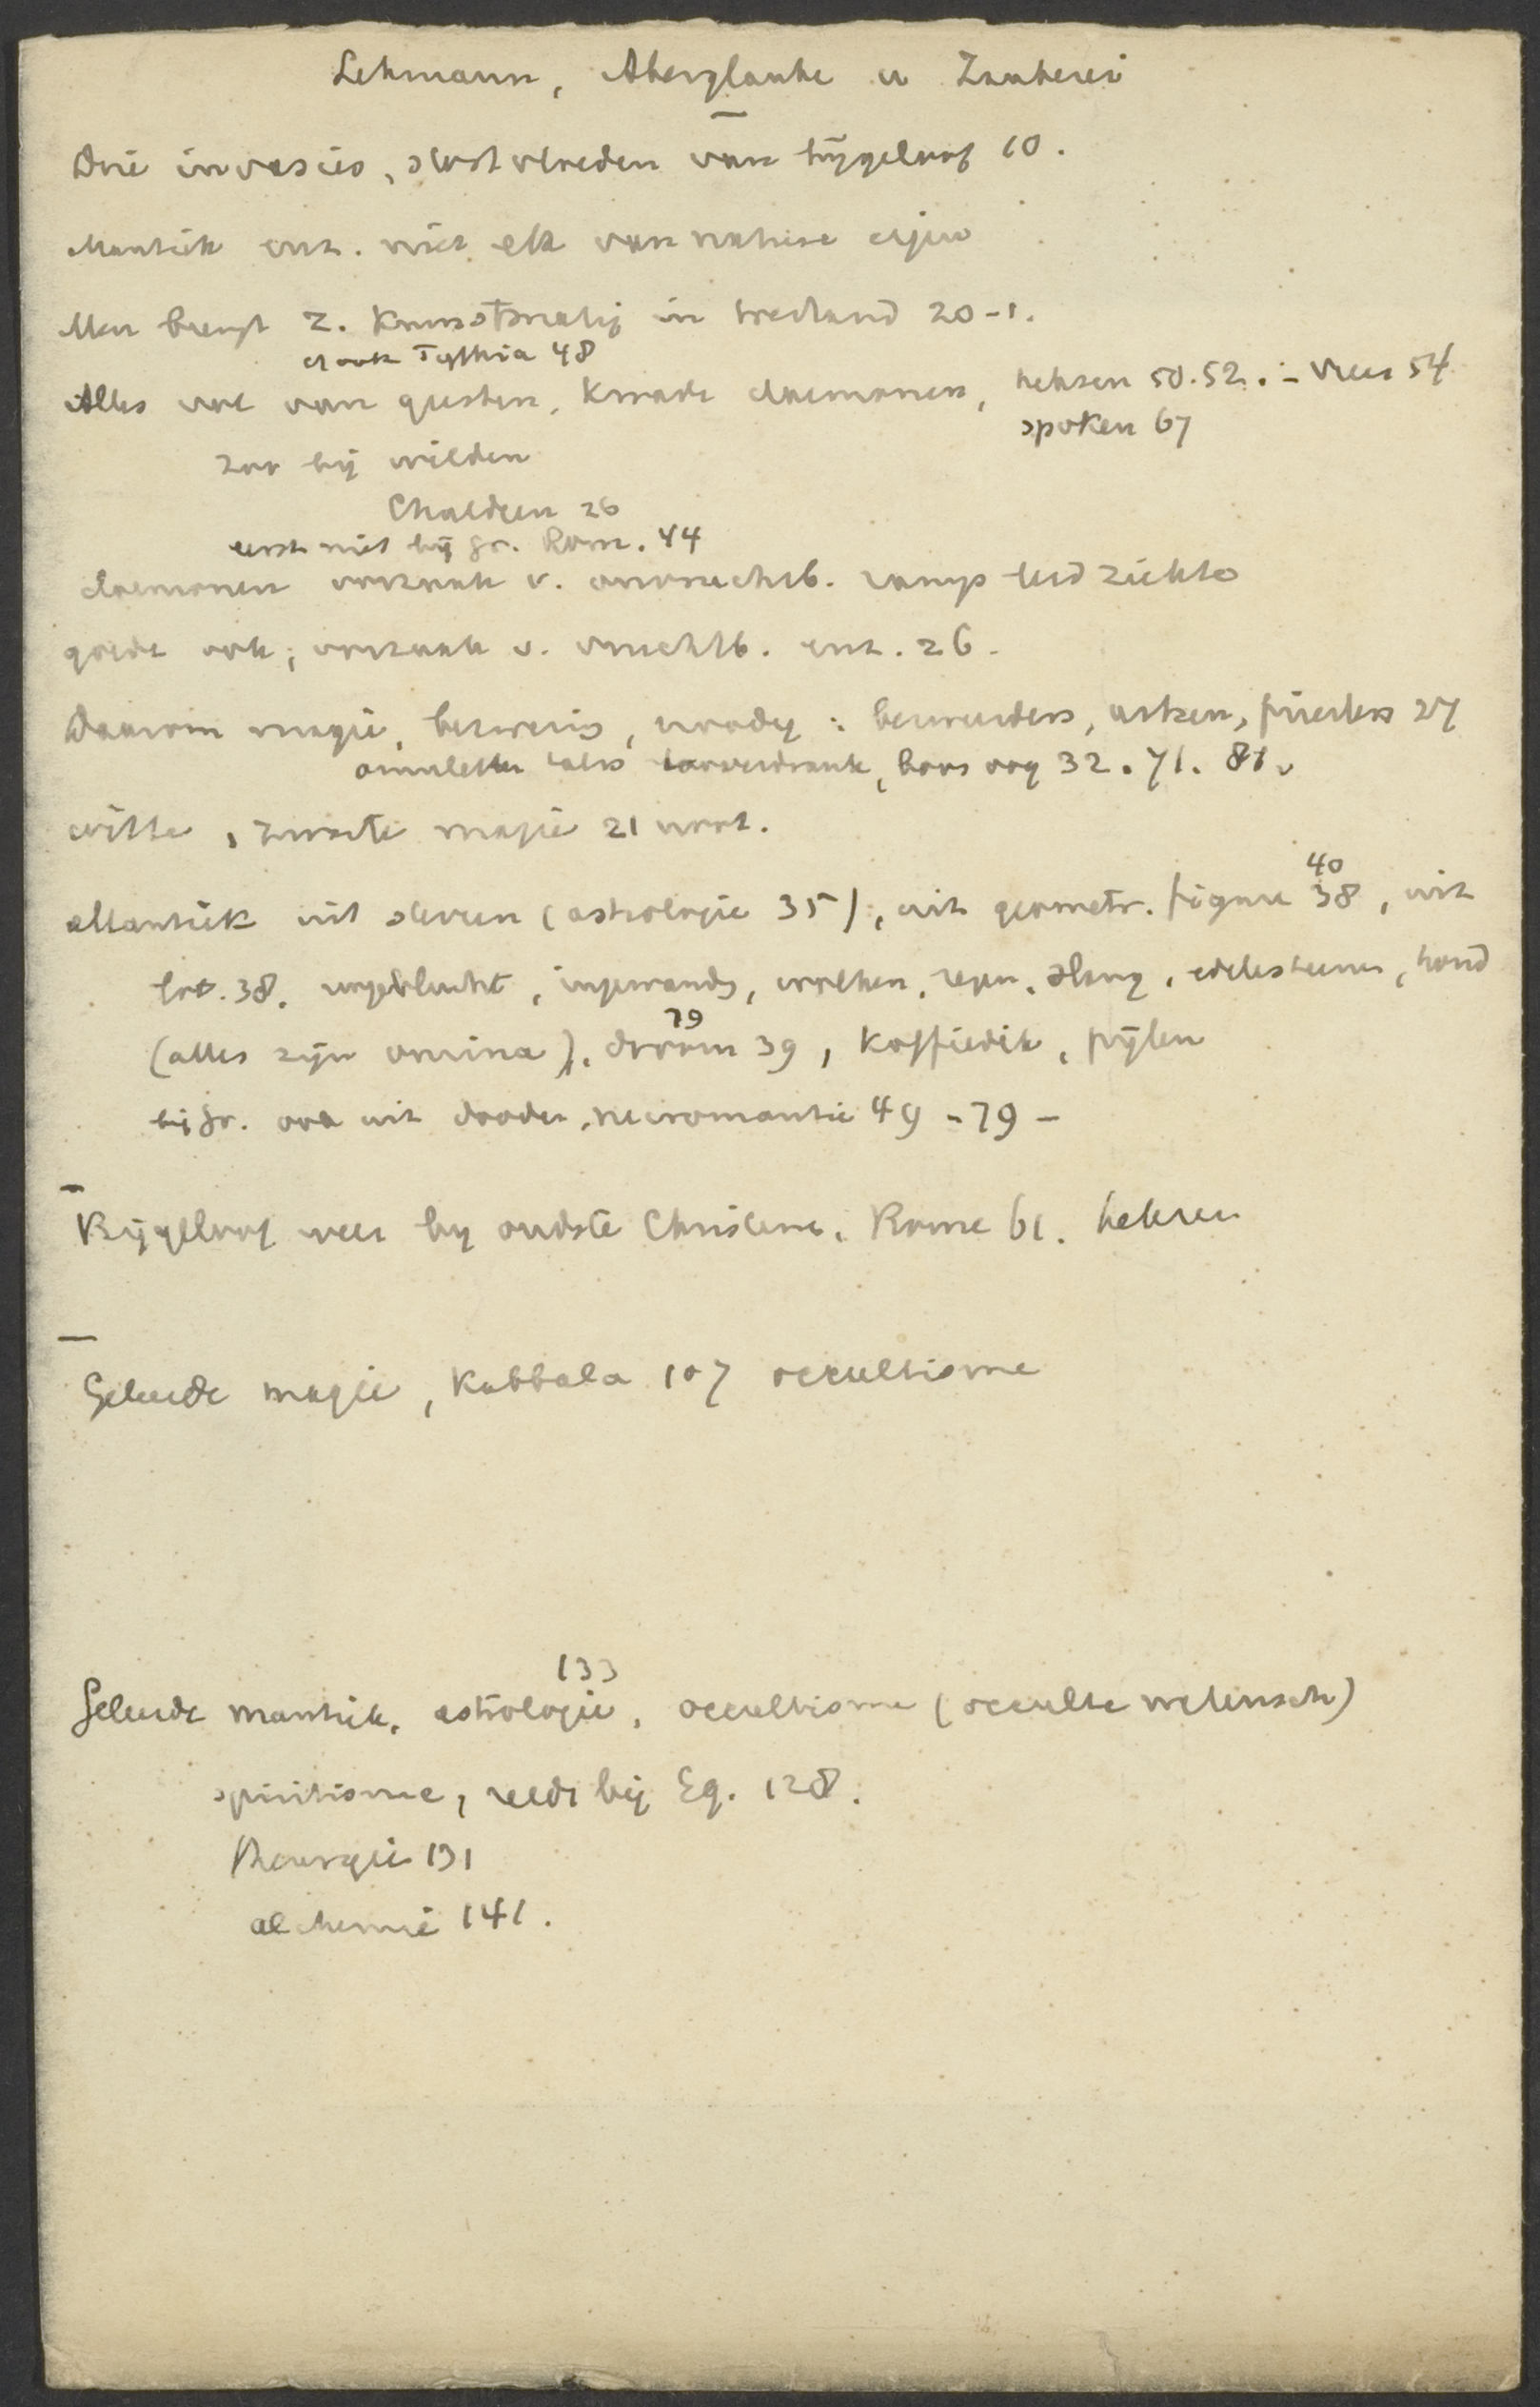 Lehmann, Aberglaube u Zauberei
Drie invasies, van bijgeloof 10.
Mantiek enz. niet elk van nature eigen
Men brengt z. kunstmatig in toestand 20-1.
ook Pythia 48
Alles vol van geesten, kwade daemonen, heksen 50.52. - Vrees 54
spoken 67
zoo bij wilden
Chaldeen 26
eerst niet bij Gr. Rom. 44
daemonen oorzaak v. onvruchtb. ramp leed ziekte
goede ook; oorzaak v. vruchtb. enz. 26.
Daarom magie, bezwering, noodig: priesters 27
amuletten tooverdrank, boos oog 32. 71. 81.
witte, zwarte magie 21 noot.
Mantiek uit sterren (astrologie 35), uit geometr. figure 38, uit
40
lot. 38. vogelvlucht, ingewandg, wolken, regen, slang, edelsteenen, hond
79
(alles zijn omina), droom 39, koffiedik, pijlen
bij Gr. ook uit dooden, necromantie 49 - 79 -
Bijgeloof weer bij oudste Christenen, Rome 61. heksen
Geleerde magie, Kabbala 107 occultisme
133
Geleerde mantiek, astrologie, occultisme (occulte wetensch)
spiritisme, reeds bij Eg. 128.
Theurgie 131
alchemie 141.